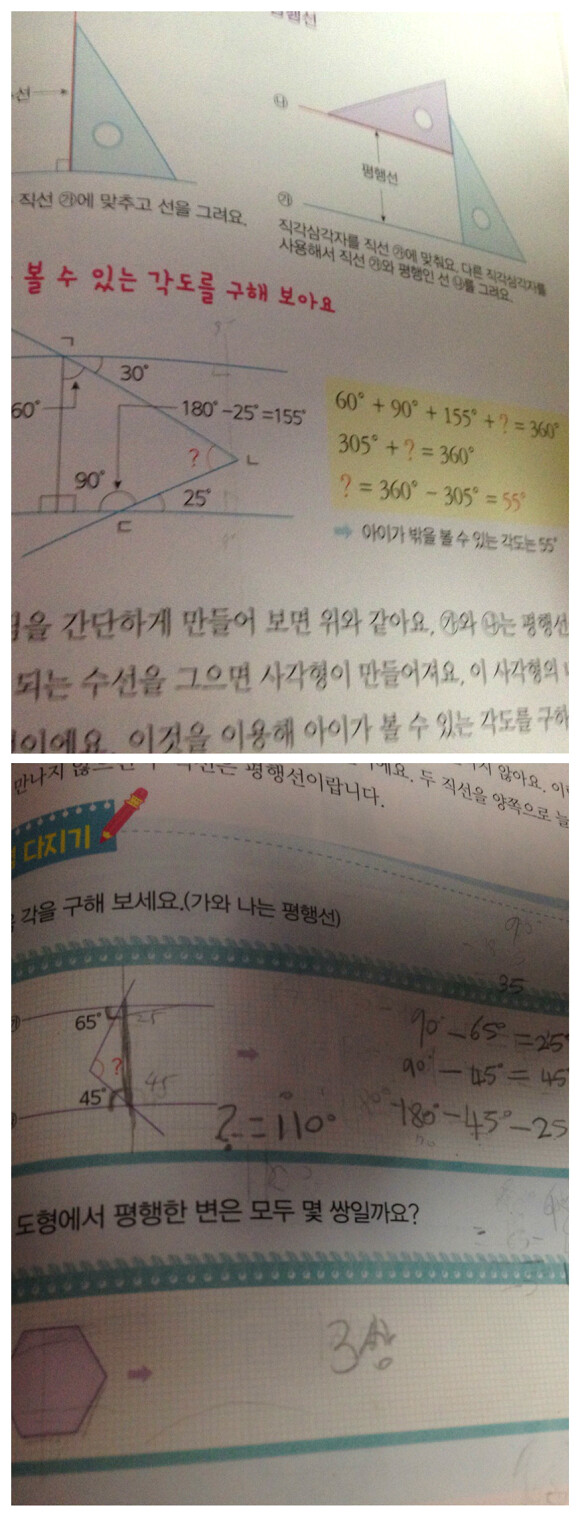 평행선
선
㉯
평행선
㉮
직선 ㉮에 맞추고 선을 그려요.
직각삼각자를 직선 ㉮에 맞춰요. 다른 직각삼각자를
사용해서 직선 ㉮와 평행인 선 ㉯를 그려요.
볼 수 있는 각도를 구해 보아요
ㄱ
30°
60°
180°-25°=155°
?
ㄴ
90°
25°
ㄷ
60° + 90° + 155° + ? = 360°
305° + ? = 360°
? = 360° - 305° = 55°
아이가 밖을 볼 수 있는 각도는 55°
을 간단하게 만들어 보면 위와 같아요. ㉮와 ㉯는 평행선
되는 수선을 그으면 사각형이 만들어져요. 이 사각형의
이에요. 이것을 이용해 아이가 볼 수 있는 각도를 구하
만나지 않 평행선이랍니다.
지 않아요. 이
예요. 두 직선을 양쪽으로 늘
다지기
각을 구해 보세요.(가와 나는 평행선)
35
65°
25
?
45°
45
90° - 65° = 25°
90° - 45° = 45
180° - 45° - 25
? = 110°
도형에서 평행한 변은 모두 몇 쌍일까요?
3쌍